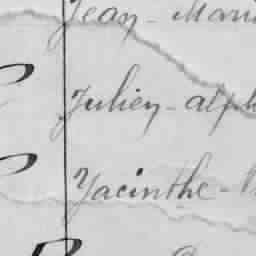 Jean - Mari
Julien - alph
Yacinthe -